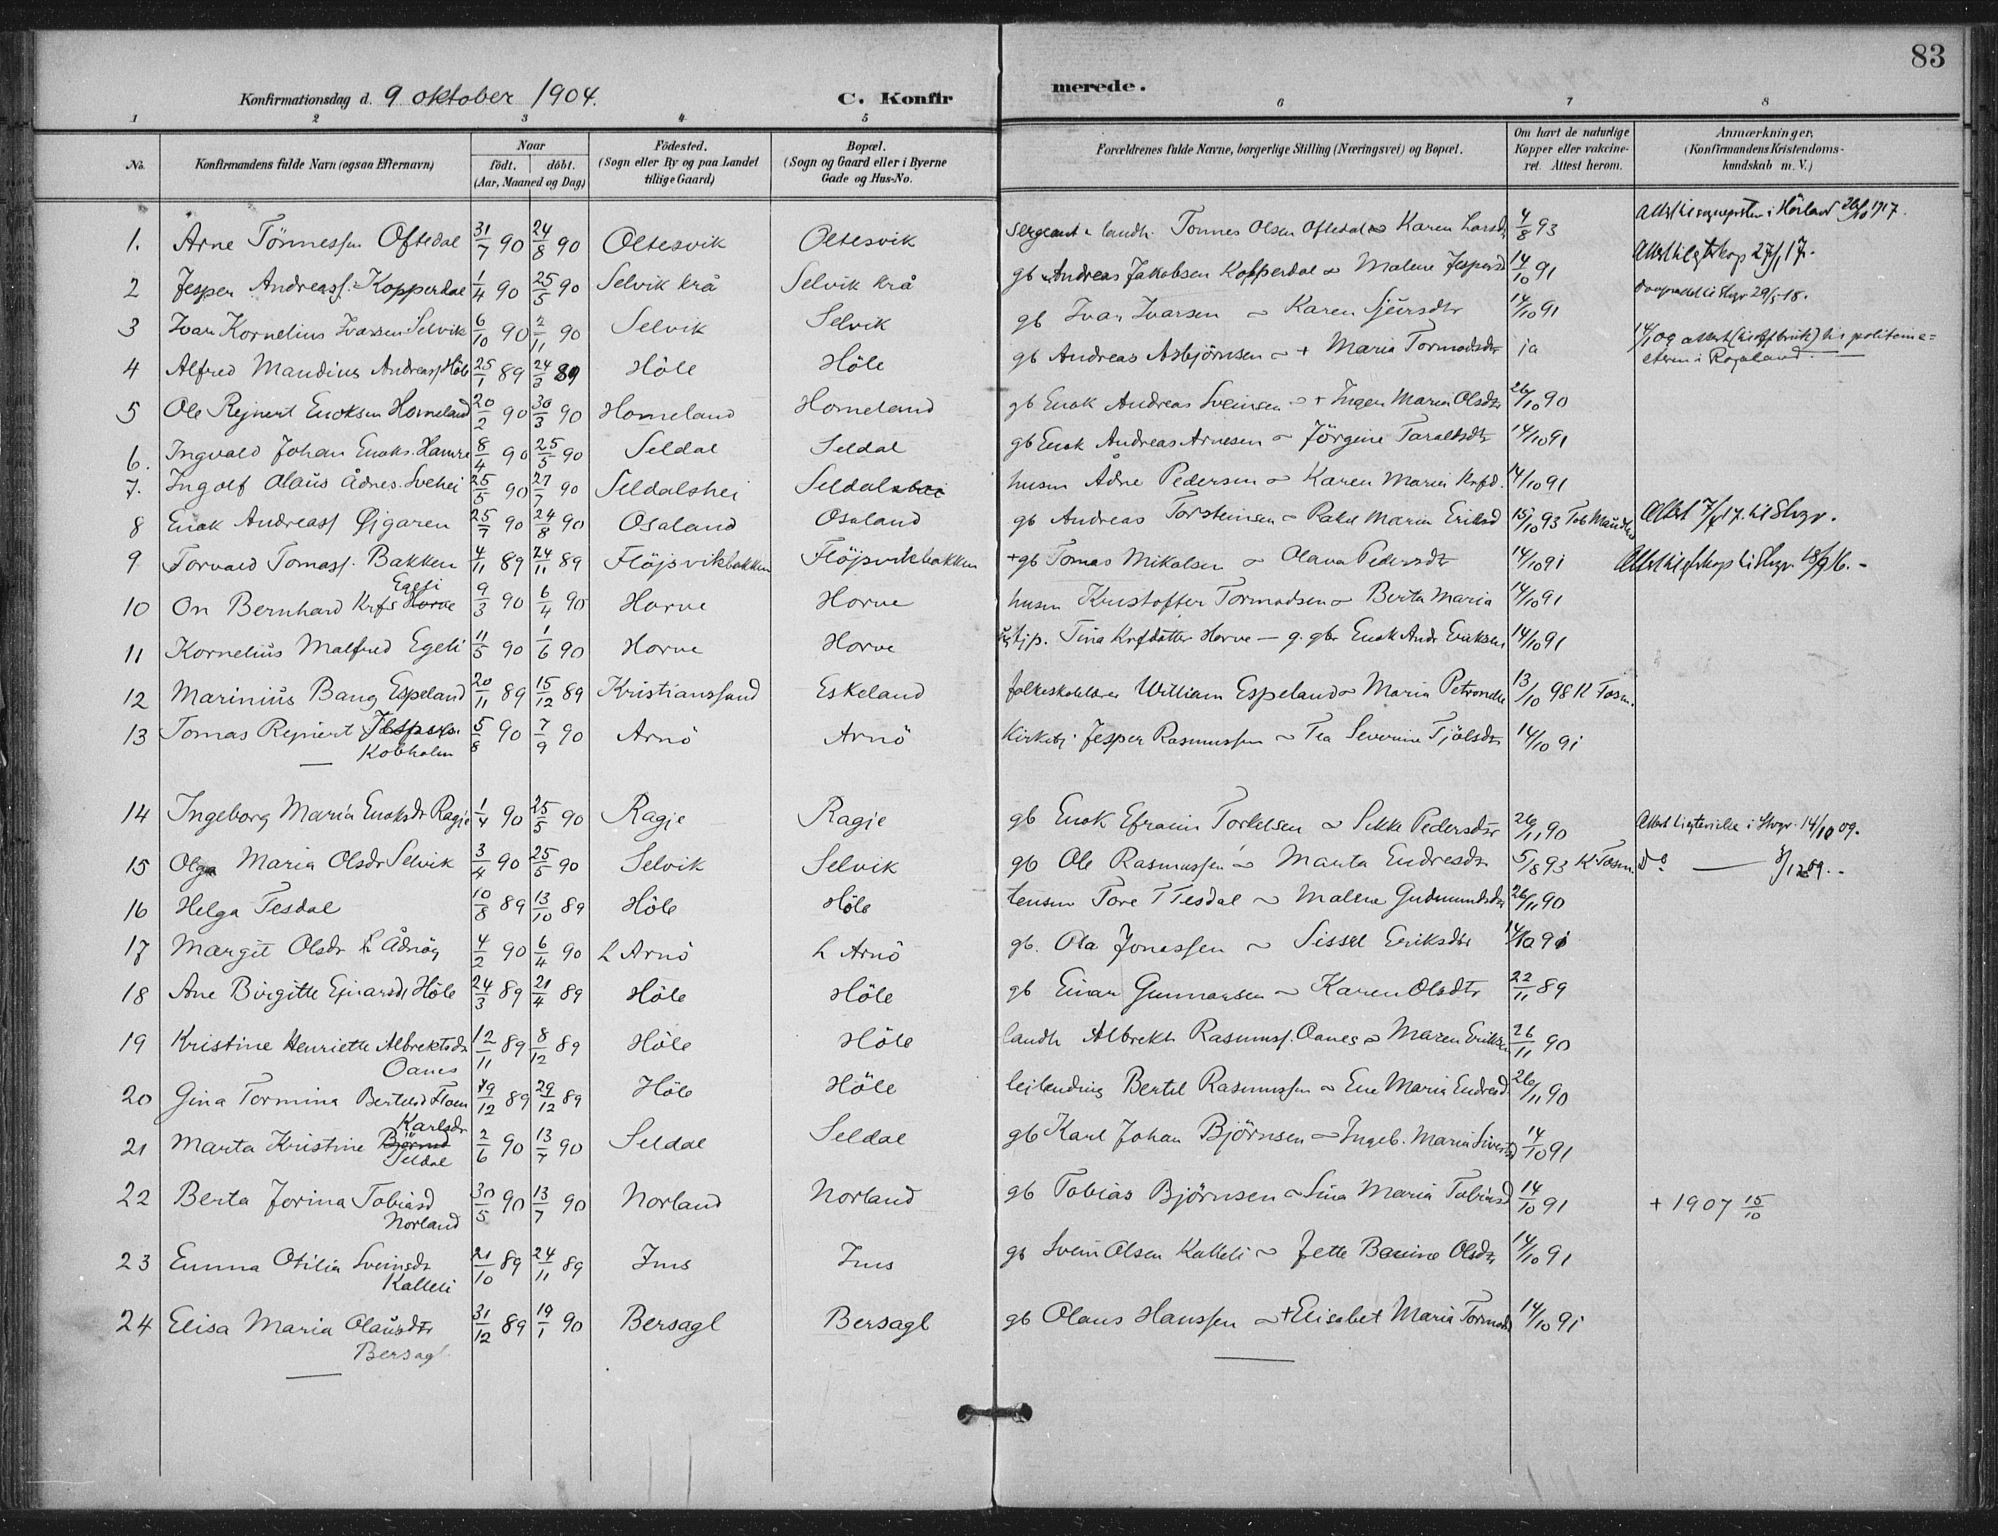 83
Konfirmationsdag d. 9 oktober 1904. C. Konfirmerede.
1 2 3 4 5 6 7 8
No. Konfirmandens fulde Navn (ogsaa Efternavn) Naar født. døbt. (Aar, Maaned og Dag) Fødested. (Sogn eller By og paa Landet tillige Gaard) Bopæl. (Sogn og Gaard eller i Byerne Gade og Hus-No. Forældrenes fulde Navne, borgerlige Stilling (Næringsvei) og Bopæl. Om havt de naturlige Kopper eller vaccineret. Attest herom. Anmærkninger. (Konfirmandens Kristendomskundskab m. V.)
1. Arne Tönnessen Oftedal 31/7 90 24/8 90 Oltesvik Oltesvik sergeant & landh. Tönnes Olsen Oftedal ~ Karen Larsd 4/8 93 1917.
2 Jesper Andreass. Kopperdal 1/4 90 25/5 90 Selvik krå Selvik krå gb Andreas Jakobsen Kopperdal ~ Malene Jespersd 14/10 91 27/11 17.
3 Ivar Kornelius Ivarsen Selvik 6/10 90 2/11 90 Selvik Selvik gb Ivar Ivarsen ~ Karen Sjursdtr 14/10 91 29/5-18.
4 Alfred Mandius Andreass Höle 25/1 89 24/3 89 Höle Höle gb Andreas Asbjörnsen ~ + Maria Tormodsdtr ja politime=
steren i Rogaland
5 Ole Rejnert Enoksen Horneland 20/2 90 30/3 90 Horneland Horneland gb Enok Andreas Sveinsen ~ + Inger Maria Olsdtr 26/10 90
6. Ingvald Johan Enoks. Hamre 8/4 90 25/5 90 Seldal Seldal gb Enok Andreas Arnesen ~ Jörgine Taraldsdtr 14/10 91
7. Ingolf Olaüs Ådnes. Svehei 25/5 90 27/7 90 Seldalshei Seldalshei husm Ådne Pedersen ~ Karen Maria Krfd. 14/10 91
8 Enok Andreass Øjgaren 25/7 90 24/8 90 Osaland Osaland gb Andreas Torsteinsen ~ Rakel Maria Eriksd 15/10 93
9 Torvald Tomass. Bakken 4/11 89 24/11 89 Flöjsvikbakken Flöjsvikbakken + gb Tomas Mikalsen ~ Olava Pedersdtr 14/10 91
Egeli
10 On Bernhard Krfs Horve 9/3 90 6/4 90 Horve Horve husm Kristoffer Tormodsen ~ Berta Maria 14/10 91
11 Kornelius Malfred Egeli 11/5 90 1/6 90 Horve Horve tjp. Tina Krfdatter Horve — g. gbr Enok Andr Eriksen 14/10 91
12 Marinius Bang Espeland 20/11 89 15/12 89 Kristianssand Eskeland folkeskolelærer William Espeland ~ Maria Petronelle 13/10 98
13 Tomas Rejnert Jespers. 5/8 90 7/9 90 Arnö Arnö Kirketj. Jesper Rasmussen ~ Tea Severine Tjölsdtr 14/10 91
Kobholm
14 Ingeborg Maria Enoksdr Ragje 1/4 90 25/5 90 Ragje Ragje gb Enok Efraim Torkelsen ~ Sikke Pedersdtr 26/11 90 14/10 09.
15 Olga Maria Olsdr Selvik 3/4 90 25/5 90 Selvik Selvik gb Ole Rasmussen ~ Marta Endresdtr 5/8 93 Do —
16 Helga Tesdal 10/8 89 13/10 89 Höle Höle Tore T Tesdal ~ Malene Gudmundsdtr 26/11 90
17 Margit Olsdr L Ådnöy 4/2 90 6/4 90 L Arnö L Arnö gb. Ola Jonassen ~ Sissel Eriksdtr 14/10 91
18 Ane Birgitte Ejnarsd Höle 24/3 89 21/4 89 Höle Höle gb Einar Gunnarsen ~ Karen Olsdtr 22/11 89
19 Kristine Henriette Albrektsdr 12/11 89 8/12 89 Höle Höle landh Albrekt Rasmuss. Oanes ~ Maren Eriksen 26/11 90
Oanes
20 Gina Tormina Bertelsd 19/12 89 29/12 89 Höle Höle leilending Bertel Rasmussen ~ Ene Maria Endresd 26/11 90
Karlsdr
21 Marta Kristine Björnsd 2/6 90 13/7 90 Seldal Seldal gb Karl Johan Björnsen ~ Ingeb. Maria Sivertsd 14/10 91
Seldal
22 Berta Jorina Tobiasd 30/5 90 13/7 90 Norland Norland gb Tobias Björnsen ~ Lina Maria Tobiasd 14/10 91 + 1907 15/10
Norland
23 Emma Otilia Sveinsdr 21/10 89 24/11 89 Ims Ims gb Svein Olsen Kalleli ~ Jette Bauine Olsdtr 14/10 91
Kalleli
24 Elisa Maria Olausdtr 31/12 89 19/1 90 Bersagl Bersagl gb Olaus Hanssen ~ + Elisabet Maria Tormodsd 14/10 91
Bersagl